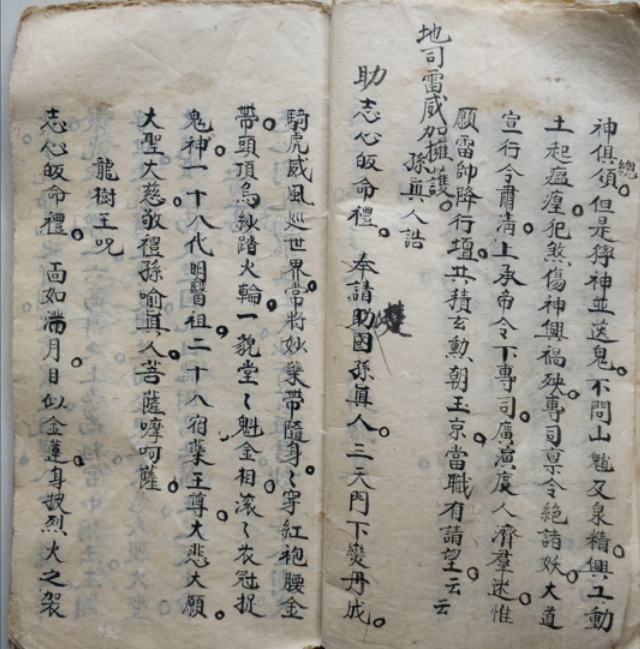 神俱領總。但是得神並送鬼。不問山魈及泉精。興工動
土起瘟瘴。犯煞傷神興禍殃。專司稟令絕諸妖。大道
宣行令肅清。上承帝令下專司。廣演度人濟羣迷。惟
願雷帥降行壇。共積玄勲朝玉京。當職有請望。云云
地司雷威加擁護。
孫真人誥
助 志心皈命禮。奉請助國孫真人。三天門下變丹成。
騎虎威風巡世界。常將妙藥帶隨身。身穿紅袍腰金
帶。頭頂烏紗踏火輪。一貌堂堂魁金相。滚滚衣冠捉
鬼神。一十八代明醫祖。二十八宿藥王尊。大悲大願
大聖大慈。敬禮孫喻真人。菩薩摩呵薩。
龍樹王咒
志心皈命禮。面如滿月目似金蓮。身披烈火之袈